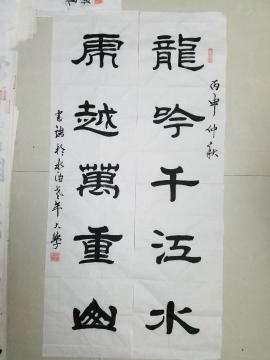 龍吟千江水
丙申仲秋
虎越萬重山
書於水冶老年大學